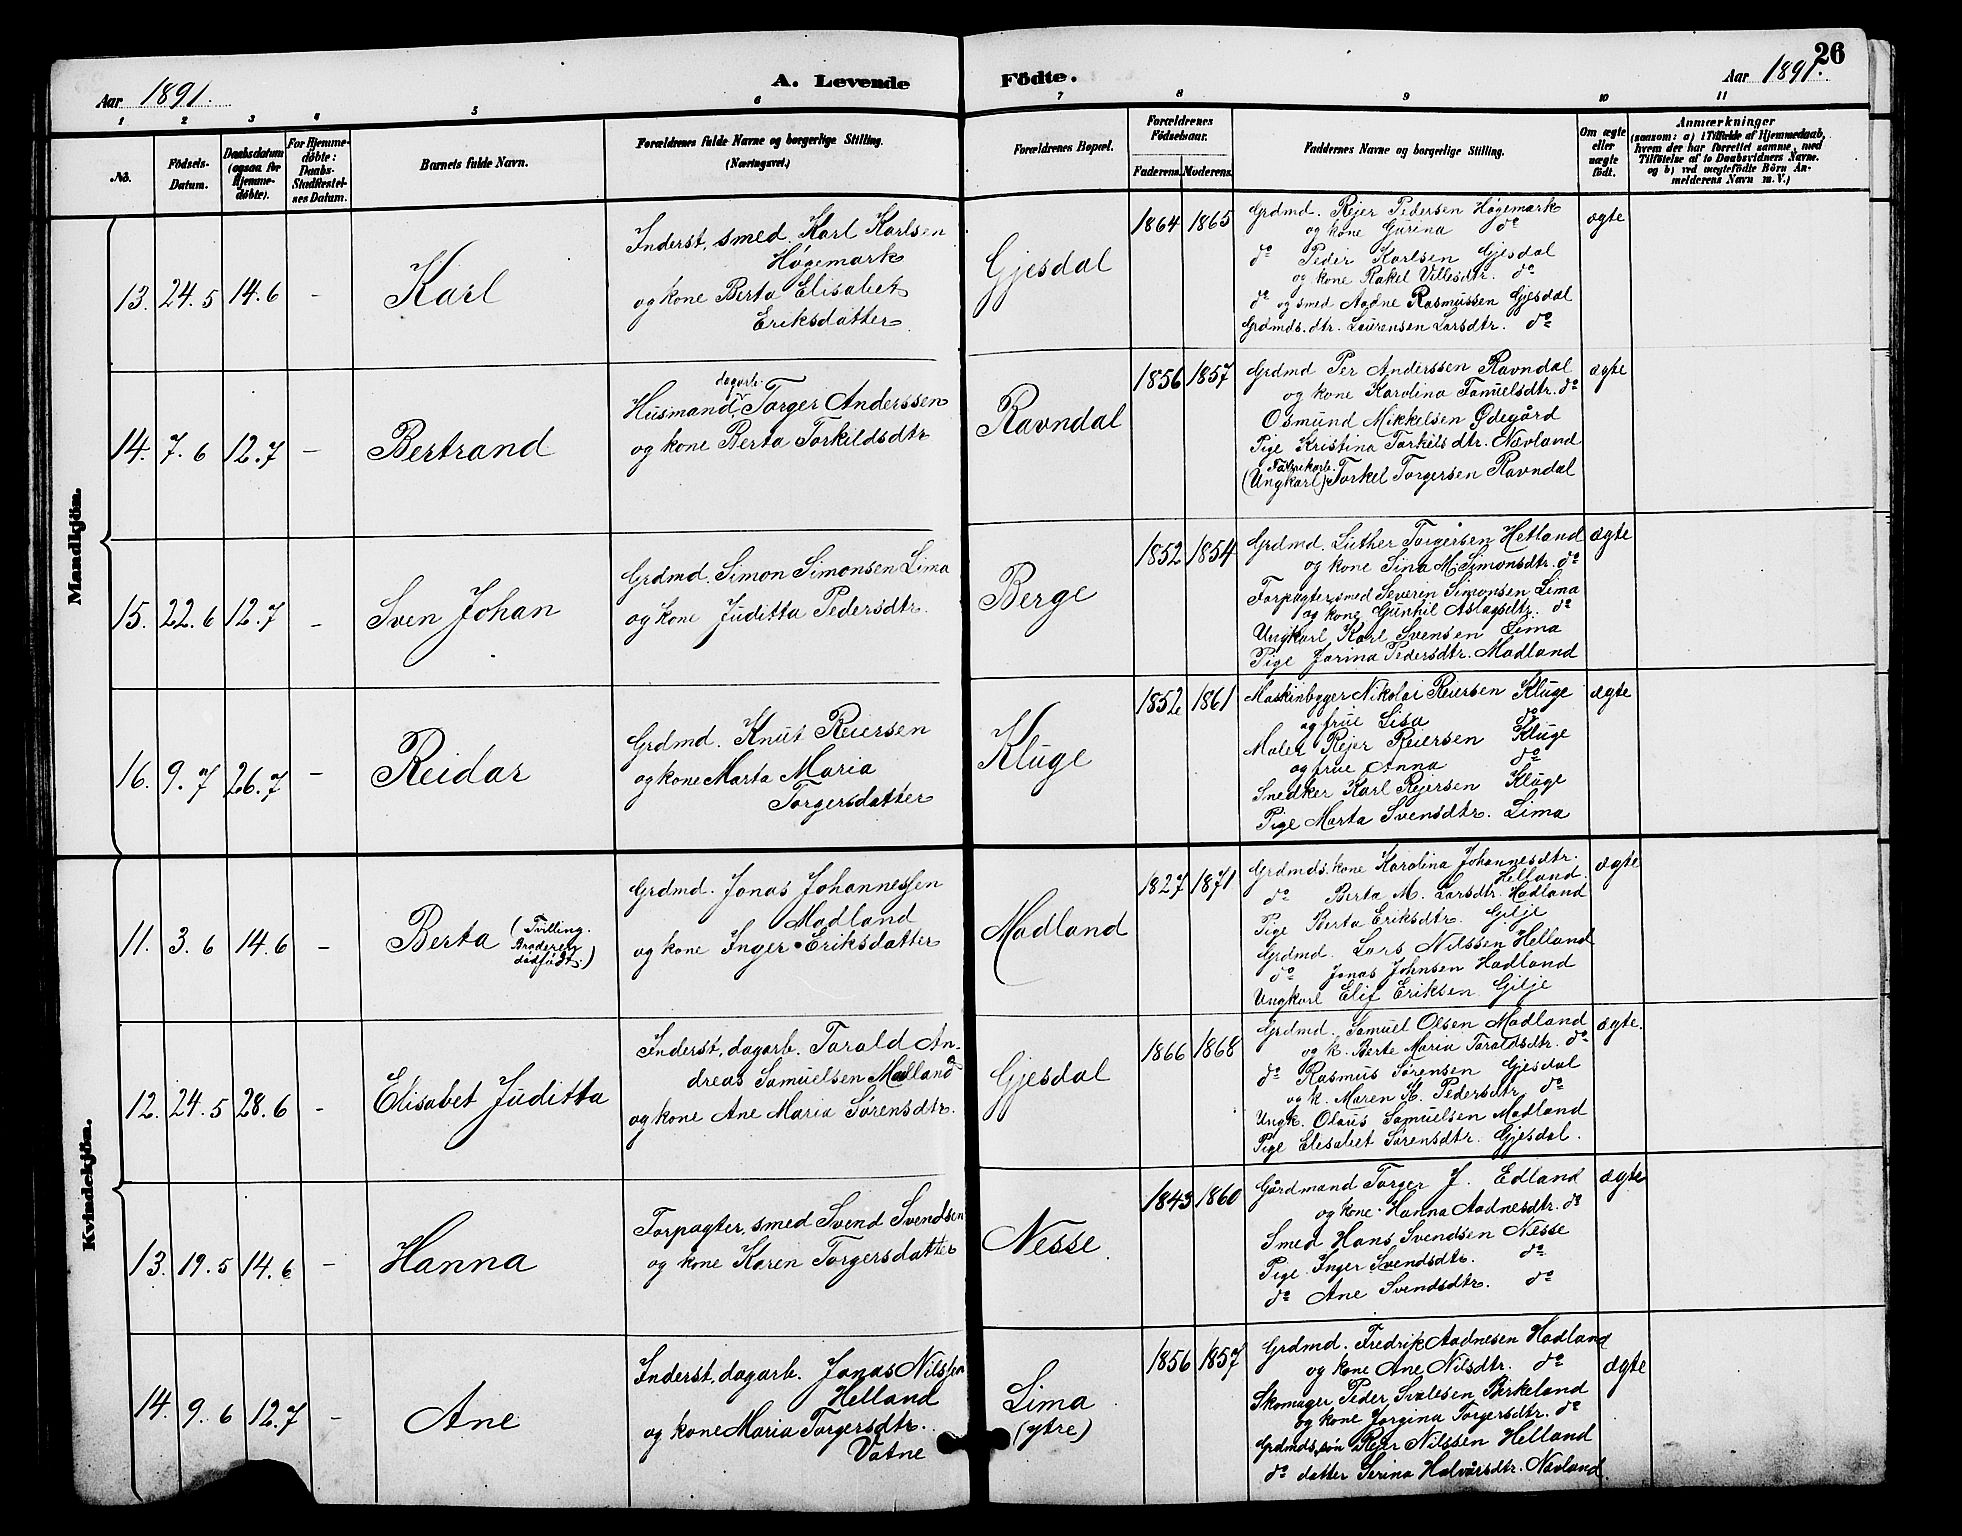 26
Aar 1891.
A. Levende
Födte.
Aar 1891.
1 2 3 4 5 6 7 8 9 10 11
No.
Födsels-
Datum.
Daabsdatum
(ogsaa for
Hjemme-
døbte).
For Hjemme-
døbte:
Daabs-
Stadfæstel-
ses Datum.
Barnets fulde Navn.
Forældrenes fulde Navne og borgerlige Stilling.
(Næringsvei.)
Forældrenes Bopæl.
Forældrenes
Födselsaar.
Faderens. Moderens.
Faddernes Navne og borgerlige Stilling.
Om ægte
eller
uægte
født.
Anmærkninger
(saasom: a) i Tilfælde af Hjemmedaab,
hvem der har forrettet samme, med
Tilföielse af to Daabsvidners Navne.
og b) ved uægtefödte Börn An-
melderens Navn m. V.)
Mandkjön.
13. 24.5 14.6 - Karl
Inderst, smed. Karl Karlsen
Høgemark
og kone Berta Elisabet
Eriksdatter
Gjesdal
1864 1865
Grdmd. Rejer Pedersen Høgemark
og kone Gurina do
do Peder Karlsen Gjesdal
og kone Rakel Villesdtr. do
do og smed Aadne Rasmussen Gjesdal
Grdmds. dtr. Laurensen Larsdtr. do
ægte
14. 7.6 12.7 - Bertrand
dagarb.
Husmand, Torger Anderssen
og kone Berta Torkildsdtr
Ravndal
1856 1857
Grdmd Per Anderssen Ravndal
og kone Karolina Samuelsdtr. do
Osmund Mikkelsen Ødegård
Pige Kristina Torkelsdtr. Nævland
Fabrikarb.
(Ungkarl) Torkel Torgersen Ravndal
ægte
15. 22.6 12.7 - Sven Johan
Grdmd. Simon Simonsen Lima
og kone Juditta Pedersdtr.
Berge
1852 1854
Grdmd. Luther Torgersen Hetland
og kone Sina M. Simonsdtr. do
Forpagter, smed Severen Simonsen Lima
og kone Gunhil Aslagsdtr. do
Ungkarl Karl Svensen Lima
Pige Jorina Pedersdtr. Madland
ægte
16. 9.7 26.7 - Reidar
Grdmd. Knut Reiersen
og kone Marta Maria
Torgersdatter
Kluge
1852 1861
Maskinbygger Nikolai Reiersen Kluge
og frue Lisa do
Maler Rejer Reiersen Kluge
og frue Anna do
Snedker Karl Rejersen Kluge
Pige Marta Svensdtr. Lima
ægte
Kvindekjön.
11. 3.6 14.6 - Berta (Tvilling.
Broderen
dødfødt.)
Grdmd. Jonas Johannessen
Madland
og kone Inger Eriksdatter
Madland
1827 1871
Grdmds. kone Karolina Johannesdtr.
Helland.
do Berta M. Larsdtr. Hadland
Pige Berta Eriksdtr. Gilje
Grdmd. Lars Nilssen Helland
do Jonas Johnsen Hadland
Ungkarl Elif Eriksen Gilje
ægte
12. 24.5 28.6 - Elisabet Juditta
Inderst, dagarb. Torald An-
dreas Samuelsen Madland
og kone Ane Maria Sørensdtr.
Gjesdal
1866 1868
Grdmd. Samuel Olsen Madland
og k. Berte Maria Toraldsdtr. do
do Rasmus Sørensen Gjesdal
og k. Maren K. Pedersdtr. do
Ungk. Olaus Samuelsen Madland
Pige Elisabet Sørensdtr. Gjesdal.
ægte.
13. 19.5 14.6 - Hanna
Forpagter, smed Svend Svendsen
og kone Karen Torgersdatter
Nesse.
1843 1860
Gårdmand Torger J. Edland
og kone Hanna Aadnesdtr. do
Smed Hans Svendsen Nesse
Pige Inger Svendsdtr. do
do Ane Svendsdtr. do
ægte
14. 9.6 12.7 - Ane
Inderst, dagarb. Jonas Nilssen
Helland
og kone Maria Torgersdtr.
Vatne
Lima
(ytre)
1856 1857
Grdmd. Fredrik Aadnesen Hadland
og kone Ane Nilsdtr. do
Skomager Peder Svalesen Birkeland
og kone Jorgina Torgersdtr. do
Grdmds. søn Rejer Nilssen Helland
do datter Serina Halvårsdtr. Nævland
ægte